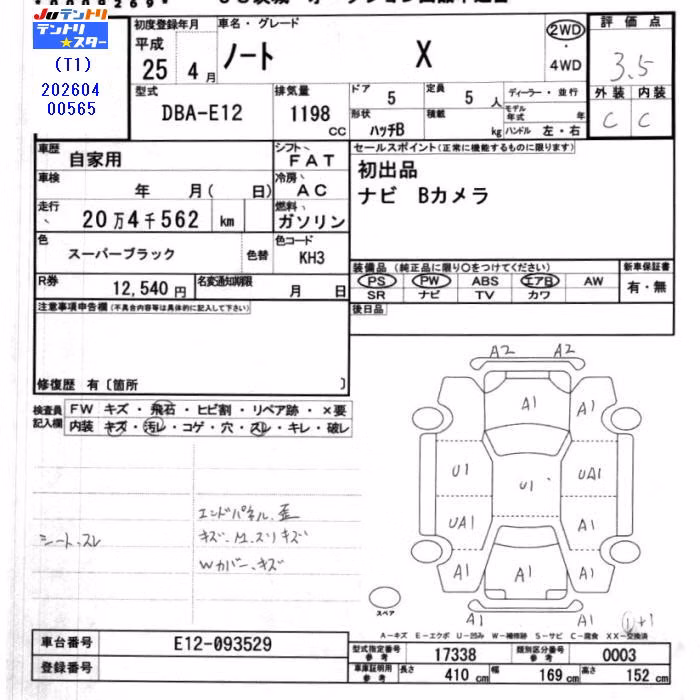 Juテントリ
テントリ★スター
(T1)
202604
00565
初度登録年月 車名・グレード
平成
25 4月 ノート X 2WD・4WD
評価点
3.5
型式 DBA-E12 排気量 1198 cc
ドア 5 定員 5 人 ディーラー・並行
形状 ハッチB 積載 kg モデル年式 年
ハンドル 左・右
外装 内装
C C
車歴 自家用 シフト FAT
車検 年 月( 日) 冷房 AC
走行 20万4千562 km 燃料 ガソリン
色 スーパーブラック 色替 色コード KH3
R券 12,540円 名変通知期限 月 日
セールスポイント(正常に機能するものに限ります)
初出品
ナビ Bカメラ
装備品(純正品に限り○をつけてください) 新車保証書
PS PW ABS エアB AW 有・無
SR ナビ TV カワ
後日品
注意事項申告欄(不具合内容等は具体的に記入して下さい)
修復歴 有〔箇所 〕
検査員記入欄
FW キズ・飛石・ヒビ割・リペア跡・×要
内装 キズ・汚レ・コゲ・穴・スレ・キレ・破レ
シート、スレ
エンドパネル、歪
キズ、M、スリキズ
Wカバー、キズ
A2 A2
A1 A1 A1
U1 U1 UA1
UA1 A1
A1 A1 A1
A1 A1
スペア
①+1
A-キズ E-エクボ U-凹み W-補修跡 S-サビ C-腐食 XX-交換済
車台番号 E12-093529
登録番号
型式指定番号 参考 17338 類別区分番号 参考 0003
車庫証明用 参考 長さ 410 cm 幅 169 cm 高さ 152 cm